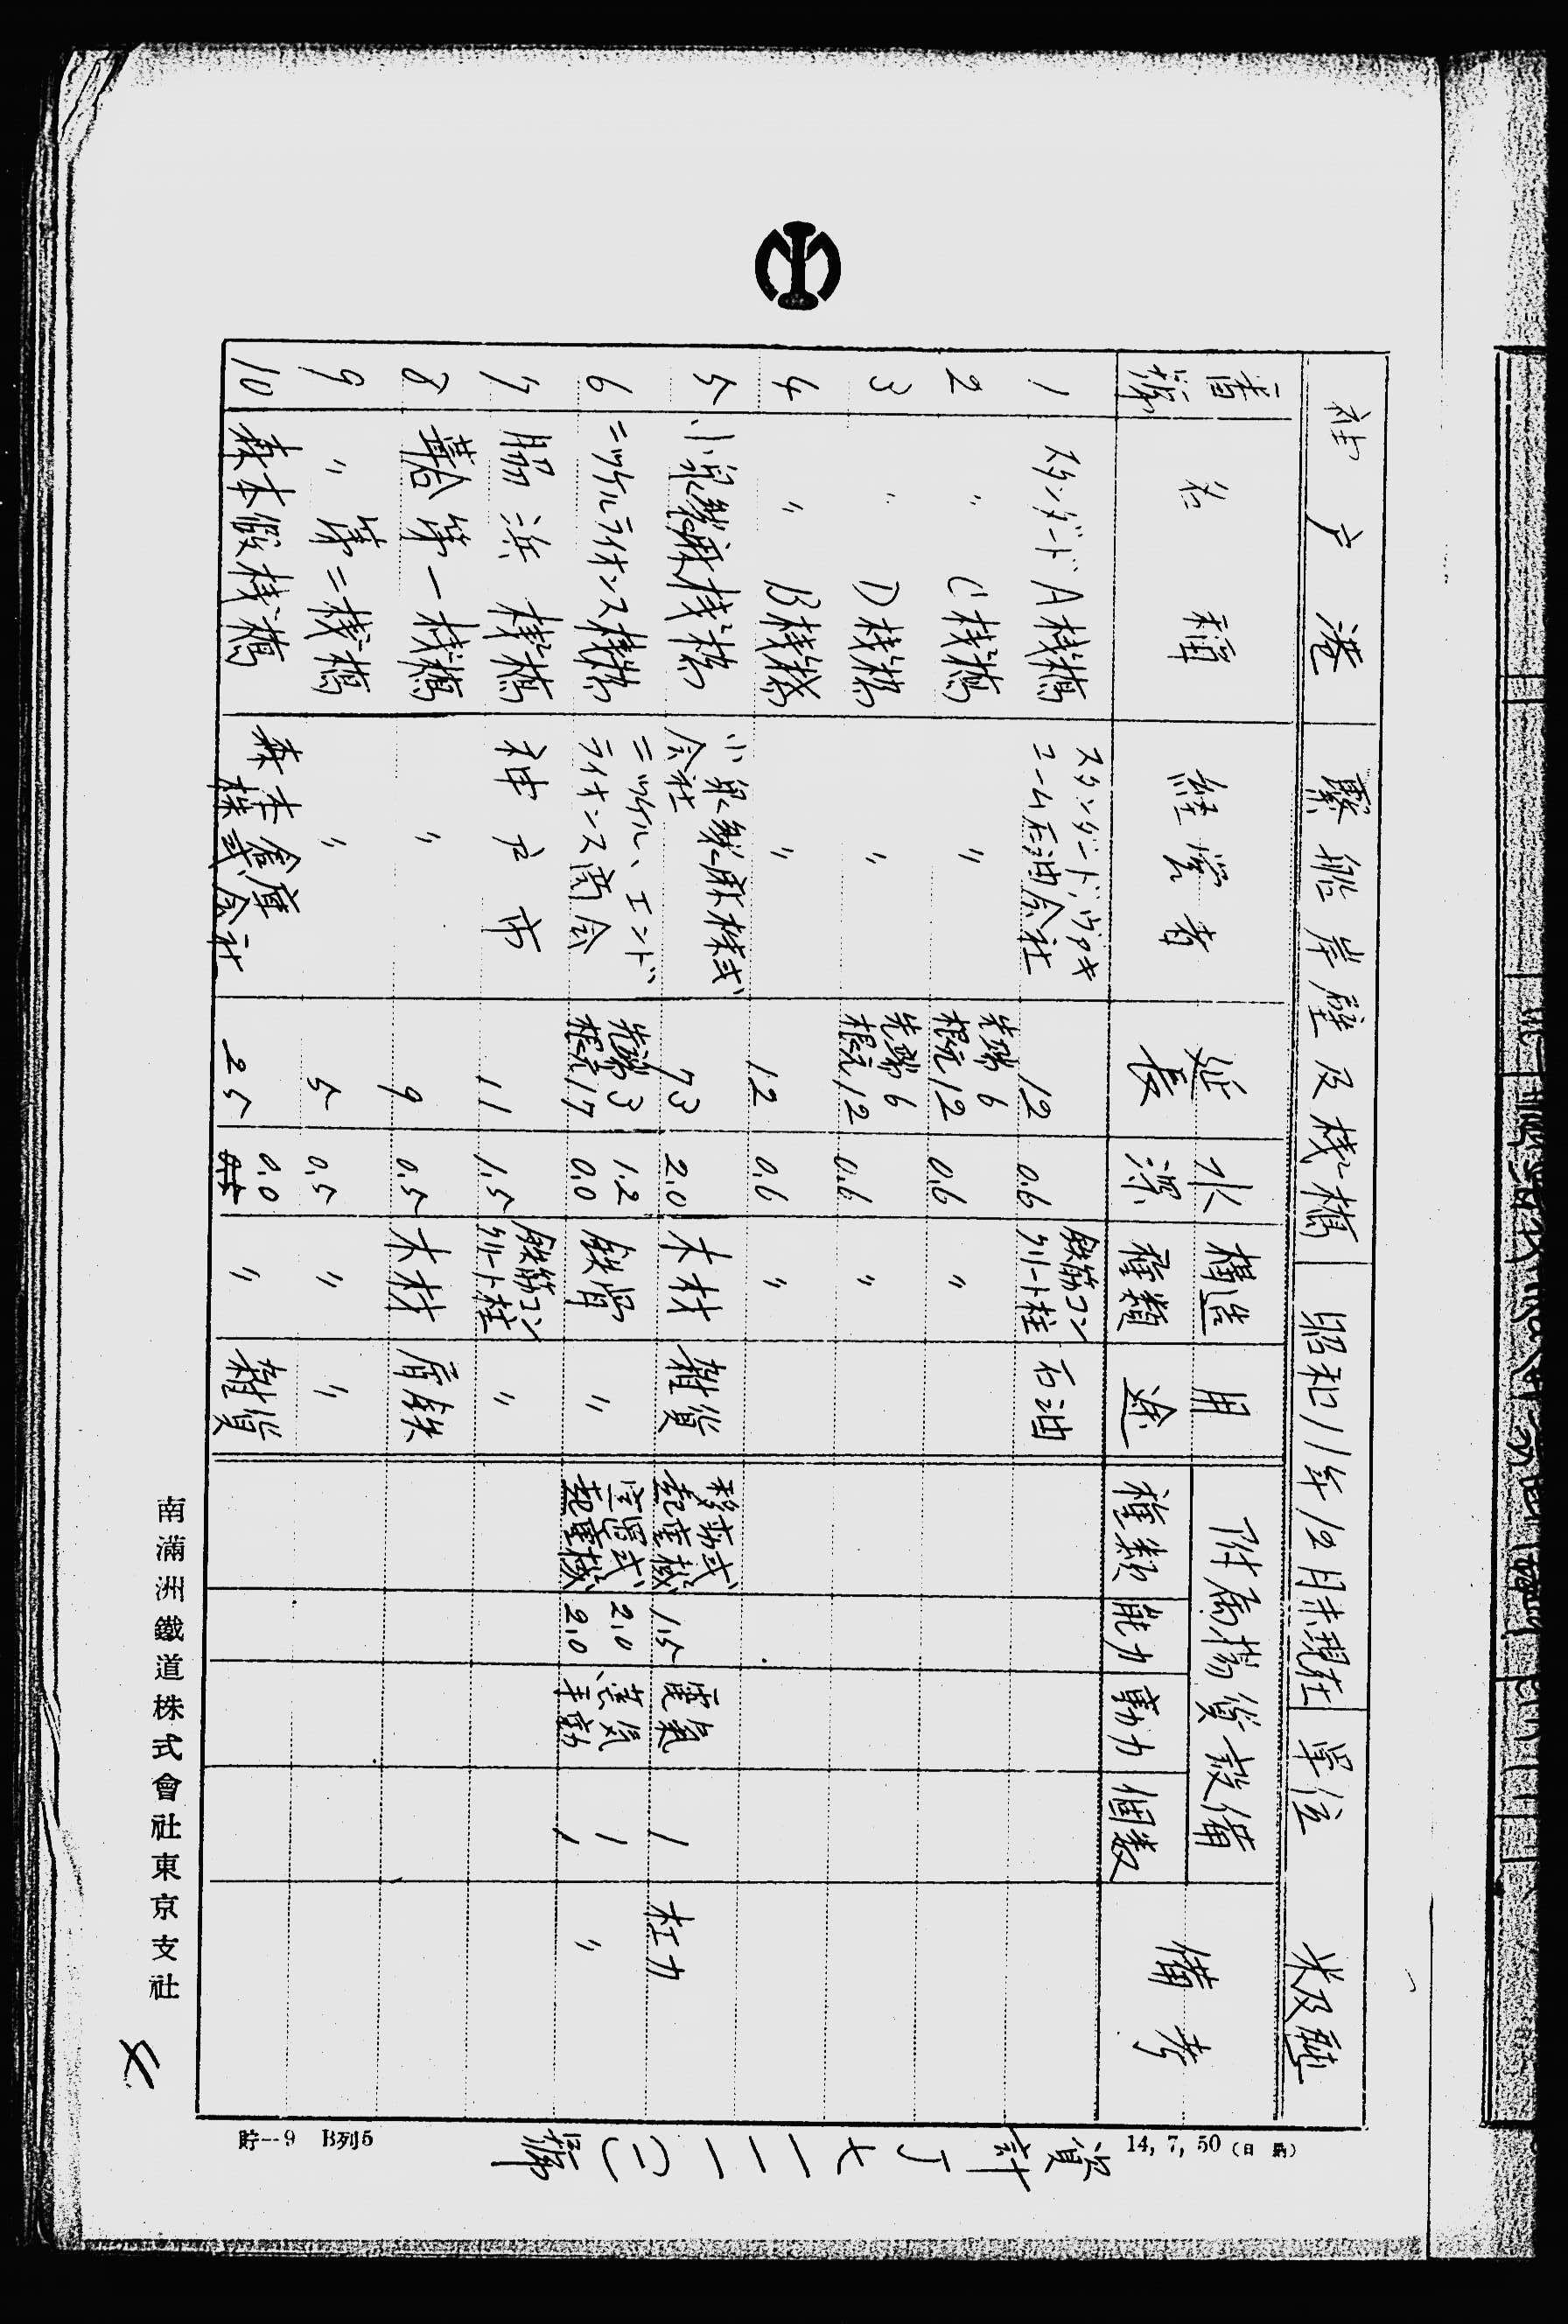 神戸港 繋船岸壁及桟橋 昭和11年12月末現在 單位 米及瓲
番號 名稱 経営者 延長 水深 構造種類 用途 附属揚貨設備 備考
種類 能力 動力 個数
1 スタンダードA桟橋 スタンダード、ヴァキューム石油会社 12 0.6 鉄筋コンクリート柱 石油
2 〃 C桟橋 〃 先端6 根元12 0.6 〃
3 〃 D桟橋 〃 先端6 根元12 0.6 〃
4 〃 B桟橋 〃 12 0.6 〃
5 小泉製麻桟橋 小泉製麻株式会社 73 2.0 木材 雑貨 移動式起重機 1.5 電氣 1 杠力
6 ニッケルライオンス桟橋 ニッケル、エンドライオンス商会 先端3 根元17 1.2 0.0 鉄骨 〃 定置式起重機 2.0 2.0 蒸気、手動 1 1 〃
7 脇浜桟橋 神戸市 11 1.5 鉄筋コンクリート柱 〃
8 葺合第一桟橋 〃 9 0.5 木材 屑鉄
9 〃 第二桟橋 〃 5 0.5 〃 〃
10 森本假桟橋 森本倉庫株式会社 25 0.0 〃 雑貨
南滿洲鐵道株式會社東京支社
4
貯―9 B列5
14, 7, 50
資計丁七一一(二)號